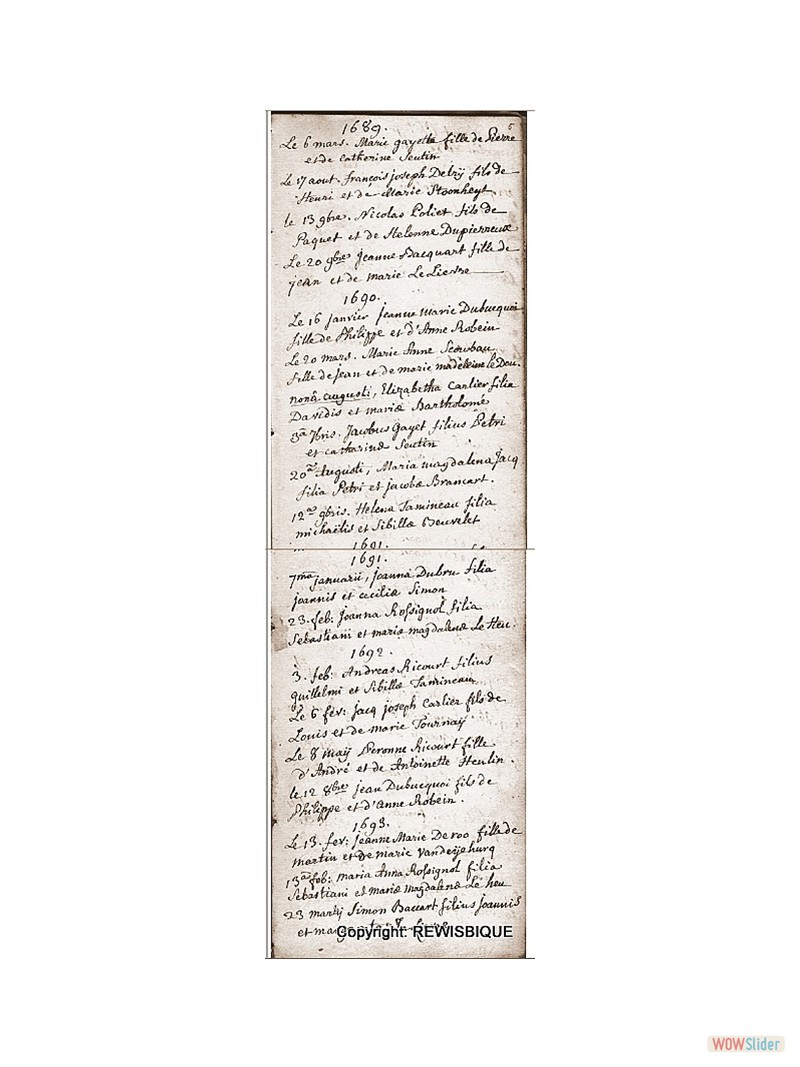 6
1689.
Le 6 mars. Marie gayette fille de Pierre
et de Catherine Seutin
Le 17 aout. françois joseph Delrÿ fils de
Henri et de Marie Stoonheyt
le 13 9bre. Nicolas Poliet fils de
Paquet et de Helenne Dupierreux
Le 20 9bre Jeanne Bacquart fille de
jean et de marie Le Lievre
1690.
Le 16 janvier jeanne Marie Dubucquoi
fille de Philippe et d'Anne Robein
Le 20 mars. Marie Anne
fille de jean et de marie madeleine le Dou.
nonâ augusti, Elizabetha Carlier filia
Davidis et mariæ Bartholomé
3a 7bris. Jacobus Gayet filius Petri
et catharinæ Seutin
20a Augusti, Maria magdalena Jacq
filia Petri et jacobæ Brancart.
12a 9bris. Helena Tamineau filia
michaëlis et Sibillæ Bouvelet
1691.
1691.
7ma januarii, joanna Dubru filia
joannis et ceciliæ Simon
23. feb: Joanna Rossignol filia
Sebastiani et mariæ magdalenæ Le Heu.
1692.
3. feb: Andreas Ricourt filius
guillelmi et Sibillæ Tamineau
Le 6 fév: jacq joseph Carlier fils de
Louis et de marie Tournaÿ
Le 8 maÿ Peronne Ricourt fille
d'André et de Antoinette Heulin.
le 12 8bre jean Dubucquoi fils de
Philippe et d'anne Robein.
1693.
Le 13. fev: jeanne Marie Deroo fille de
martin et de marie
13a feb: maria Anna Rossignol filia
Sebastiani et mariæ magdalenæ Le heu
23 martij Simon Baccart filius joannis
et
Copyright: REWISBIQUE
WOWSlider